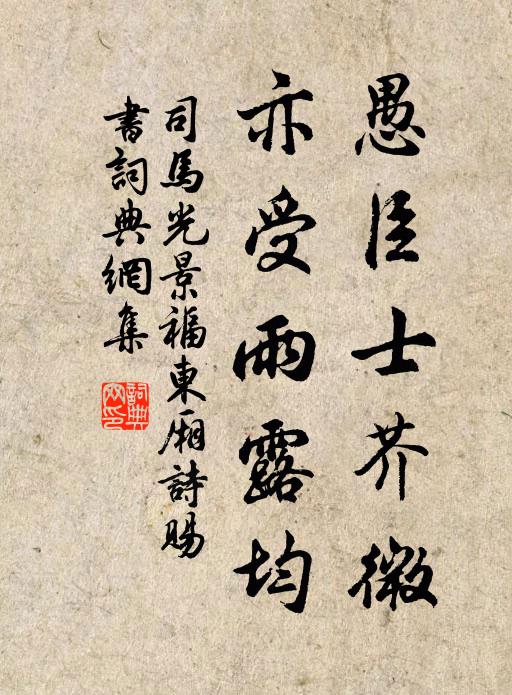 愚臣士芥微
亦受雨露均
司馬光景福東厢詩賜
書詞典網集
詞典
网印